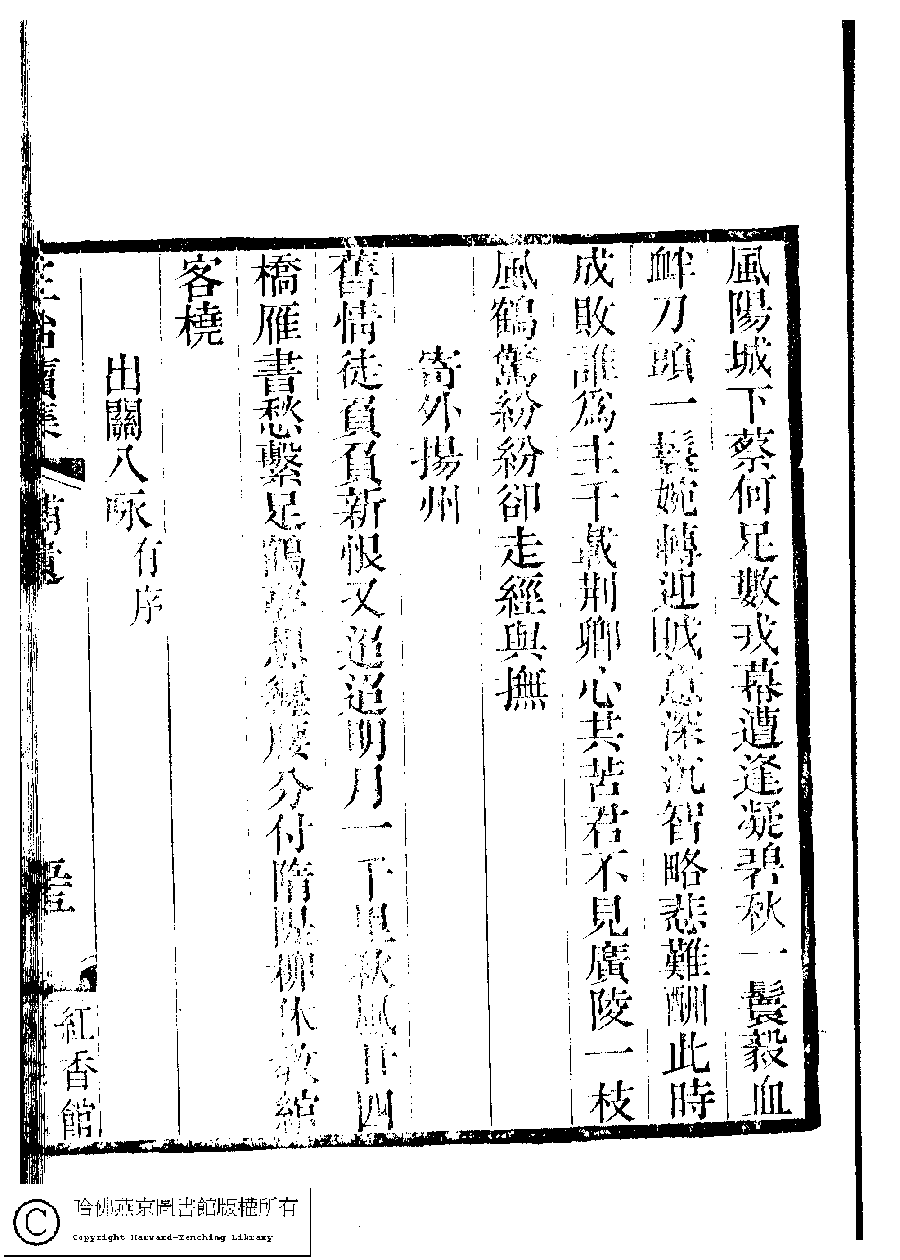 風陽城下蔡何足數戎幕遭逢凝碧秋一鬟毅血
衅刀頭一鬟婉轉迎賊意深沉智略悲難酬此時
成敗誰爲主千載荆卿心共苦君不見廣陵一枝
風鶴驚紛紛卻走經與撫
寄外揚州
舊情徒負負新恨又迢迢明月一千里秋風廿四
橋雁書愁繫足鶴夢想纏腰分付隋隄柳休教綰
客橈
出關八咏有序
續集 補遺
五
紅香館
哈佛燕京圖書館版權所有
Copyright Harvard-Yenching Library